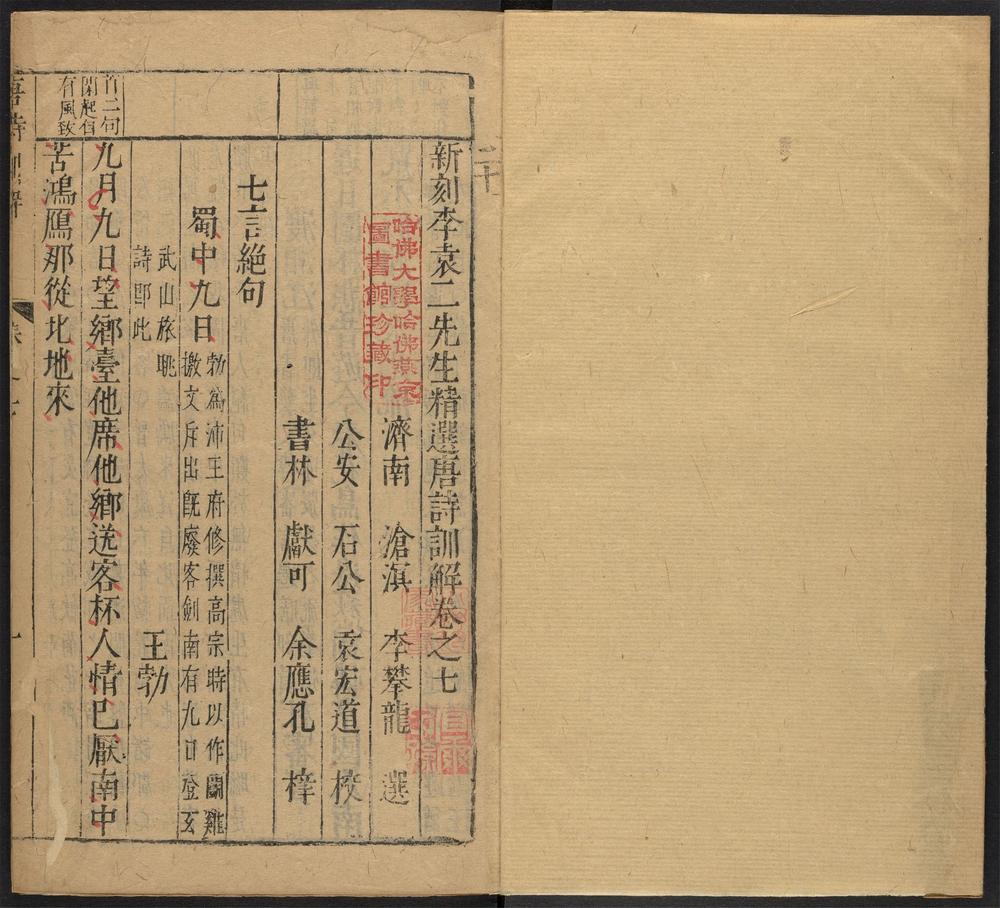 新刻李袁二先生精選唐詩訓解卷之七
濟南 滄溟 李攀龍 選
公安 石公 袁宏道 校
書林 獻可 余應孔 梓
七言絕句
蜀中九日
勃爲沛王府修撰高宗時以作鬬雞
檄文斥出旣廢客劍南有九日登玄
武山旅眺
詩卽此
王勃
九月九日望鄉臺他席他鄉送客杯人情已厭南中
苦鴻鴈那從北地來
首二句
有風致
哈佛大學哈佛燕京
圖書館珍藏印